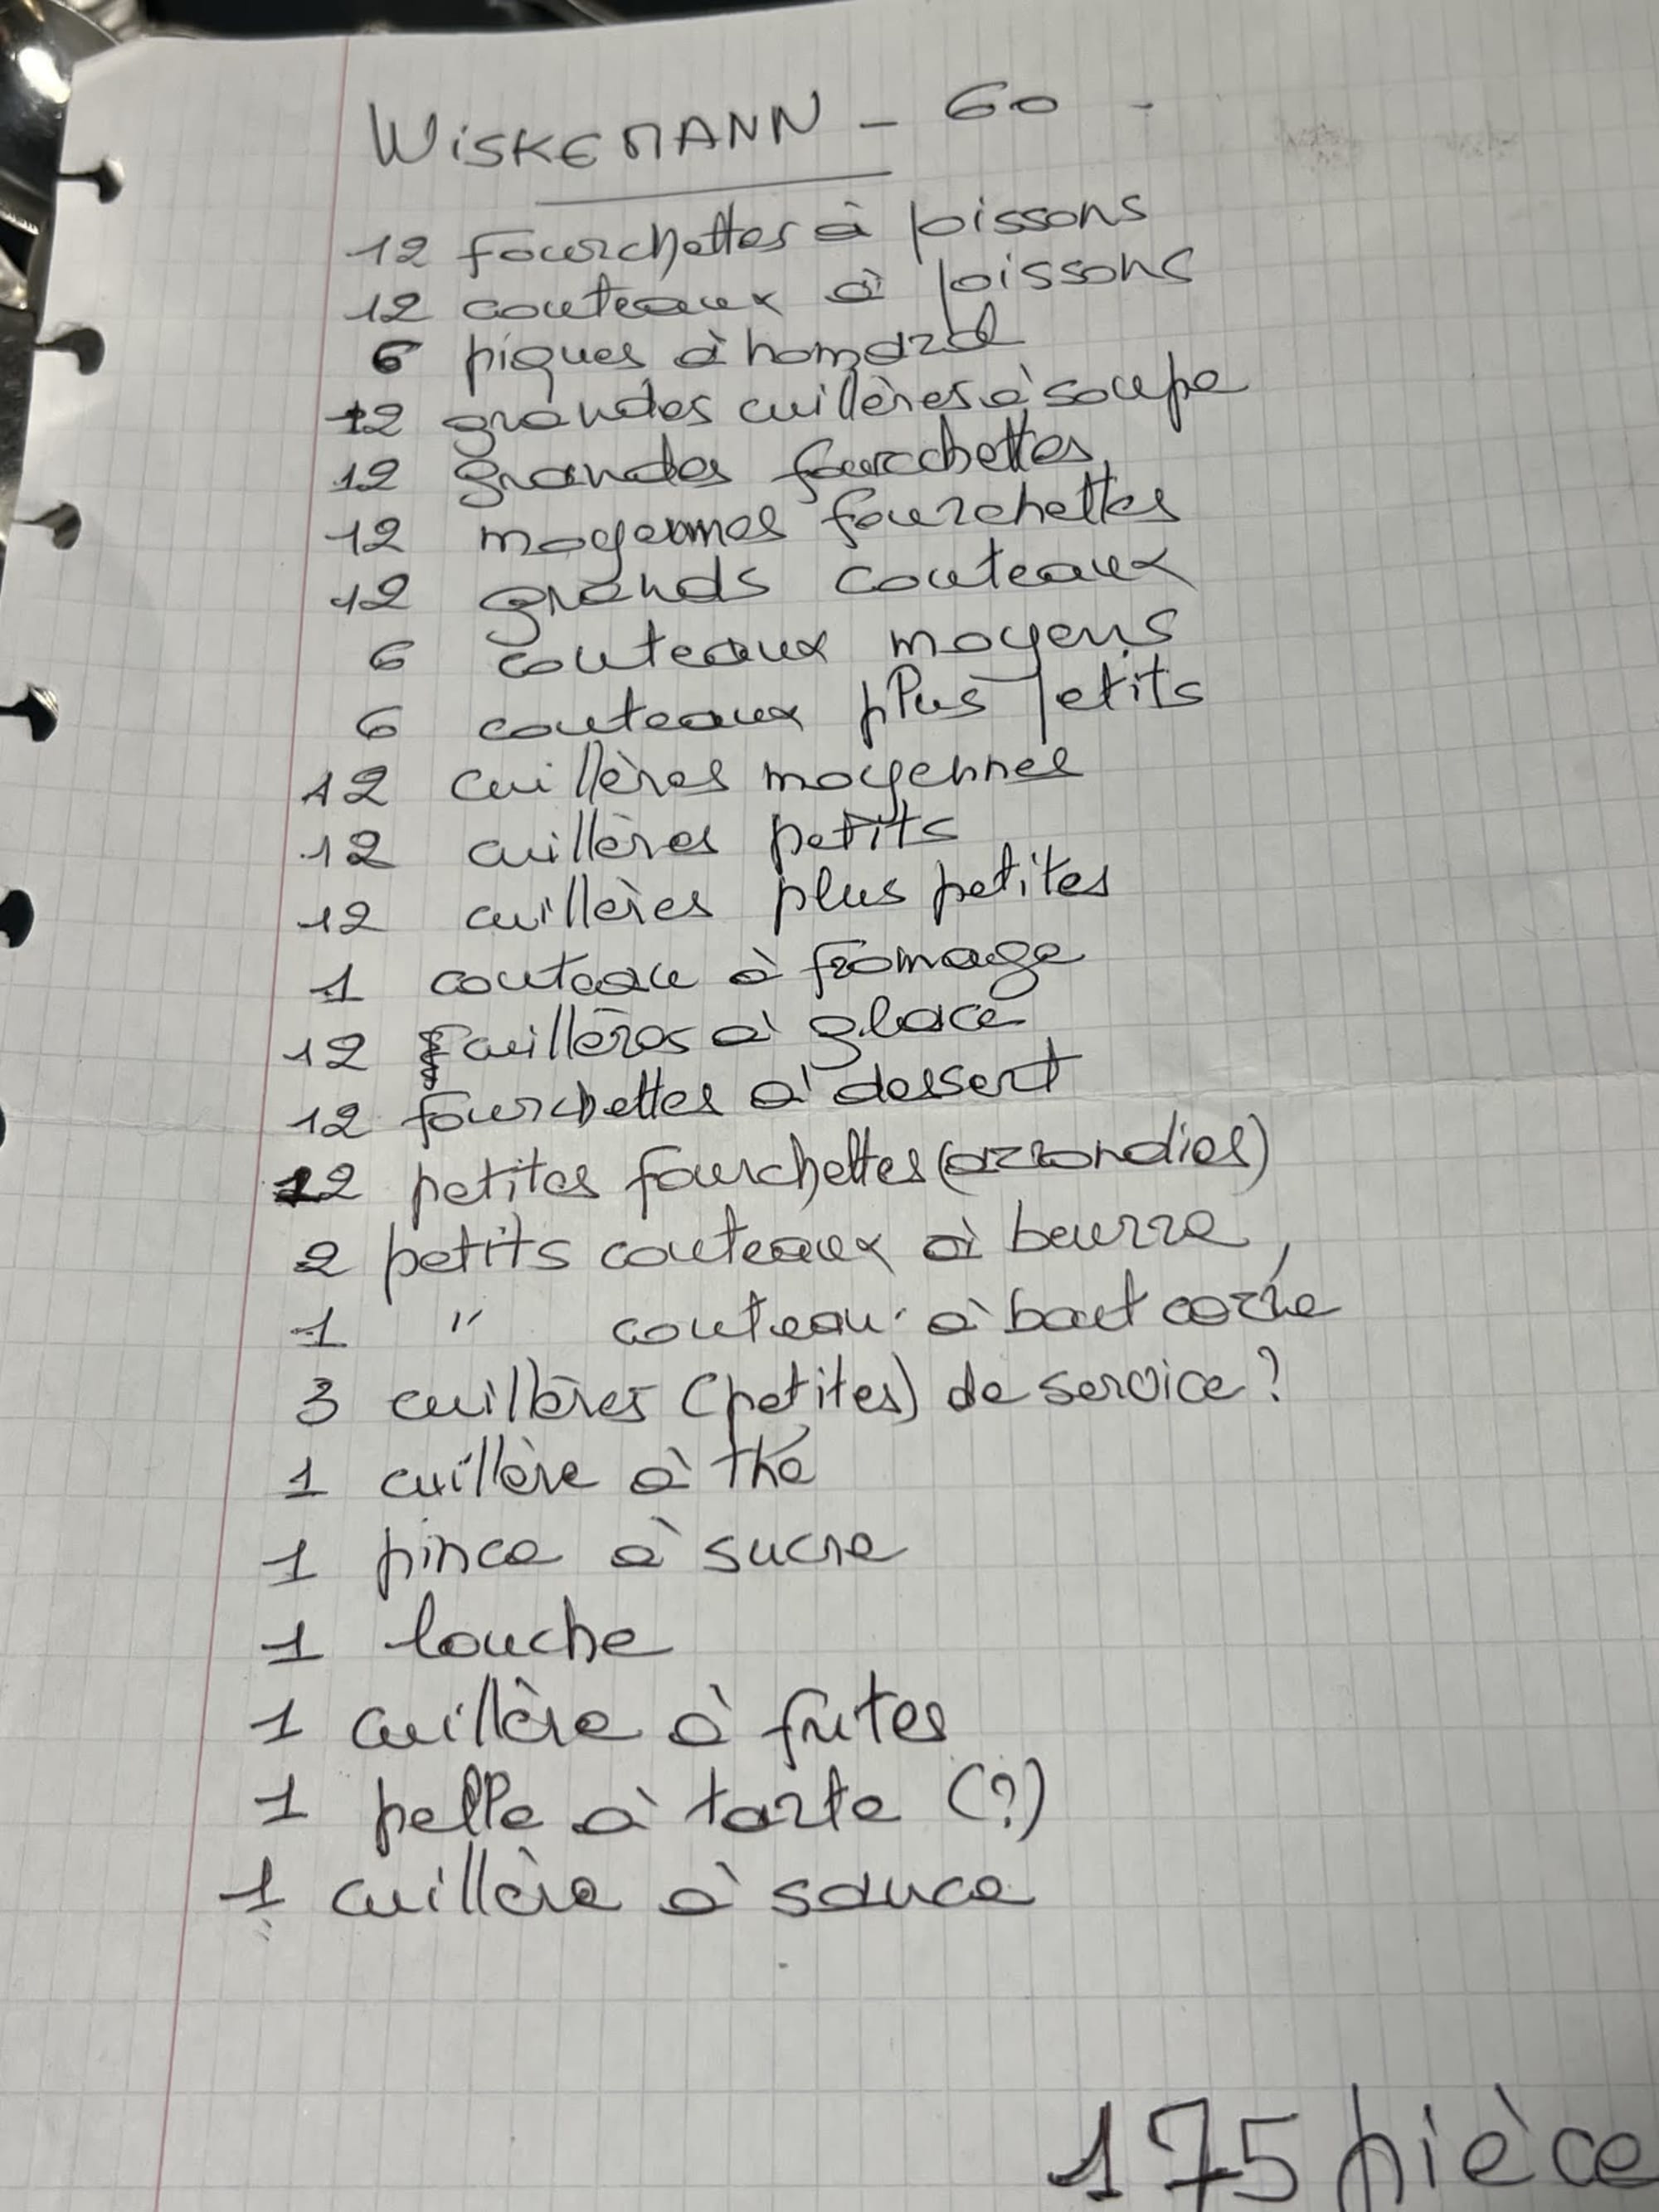 WiSKEMANN - 60 -
12 fourchettes à poissons
12 couteaux à poissons
6 piques à homard
12 grandes cuillères à soupe
12 grandes fourchettes
12 moyennes fourchettes
12 grands couteaux
6 couteaux moyens
6 couteaux plus petits
12 cuillères moyennes
12 cuillères petits
12 cuillères plus petites
1 couteau à fromage
12 cuillères à glace
12 fourchettes à dessert
12 petites fourchettes (arrondies)
2 petits couteaux à beurre,
1 " couteau à bout
3 cuillères (petites) de service ?
1 cuillère à thé
1 pince à sucre
1 louche
1 cuillère à frites
1 pelle à tarte (?)
1 cuillère à sauce
175 pièce